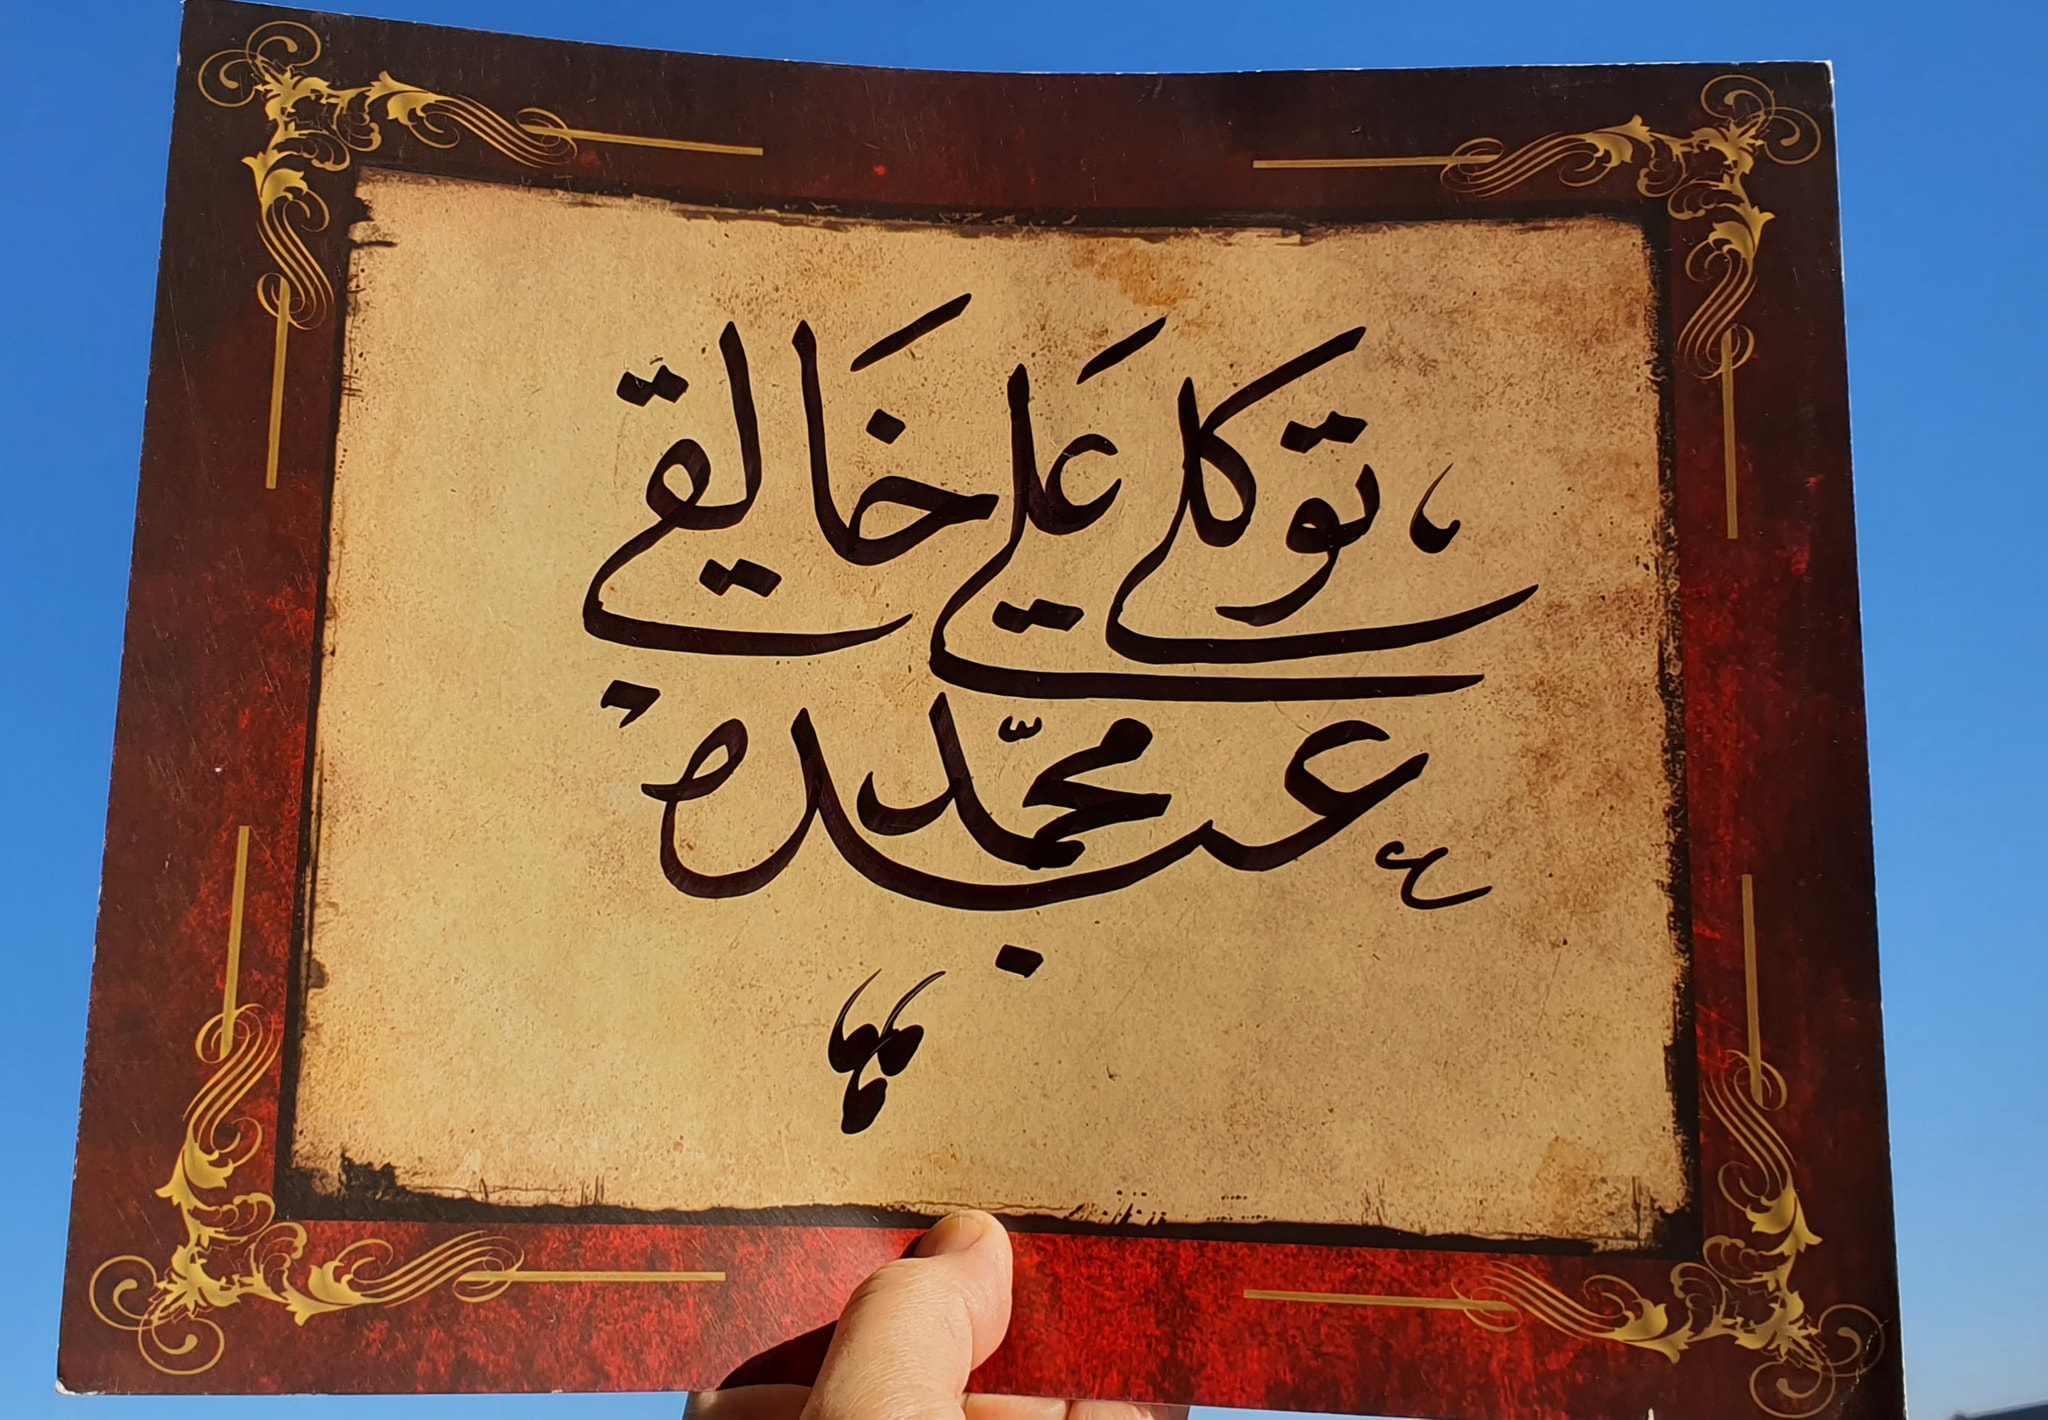 توكلى علي خالقي
عبده محمّد